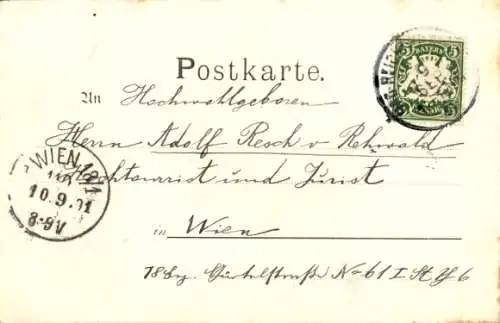 5 BAYERN 5
Postkarte.
An Hochwohlgeboren
Herrn Adolf Resch v. Rehwald
Hochtourist und Jurist
WIEN 18/1
10.9.01
8-9V
in Wien
18 Bez. Gürtelstraße No 61 I St